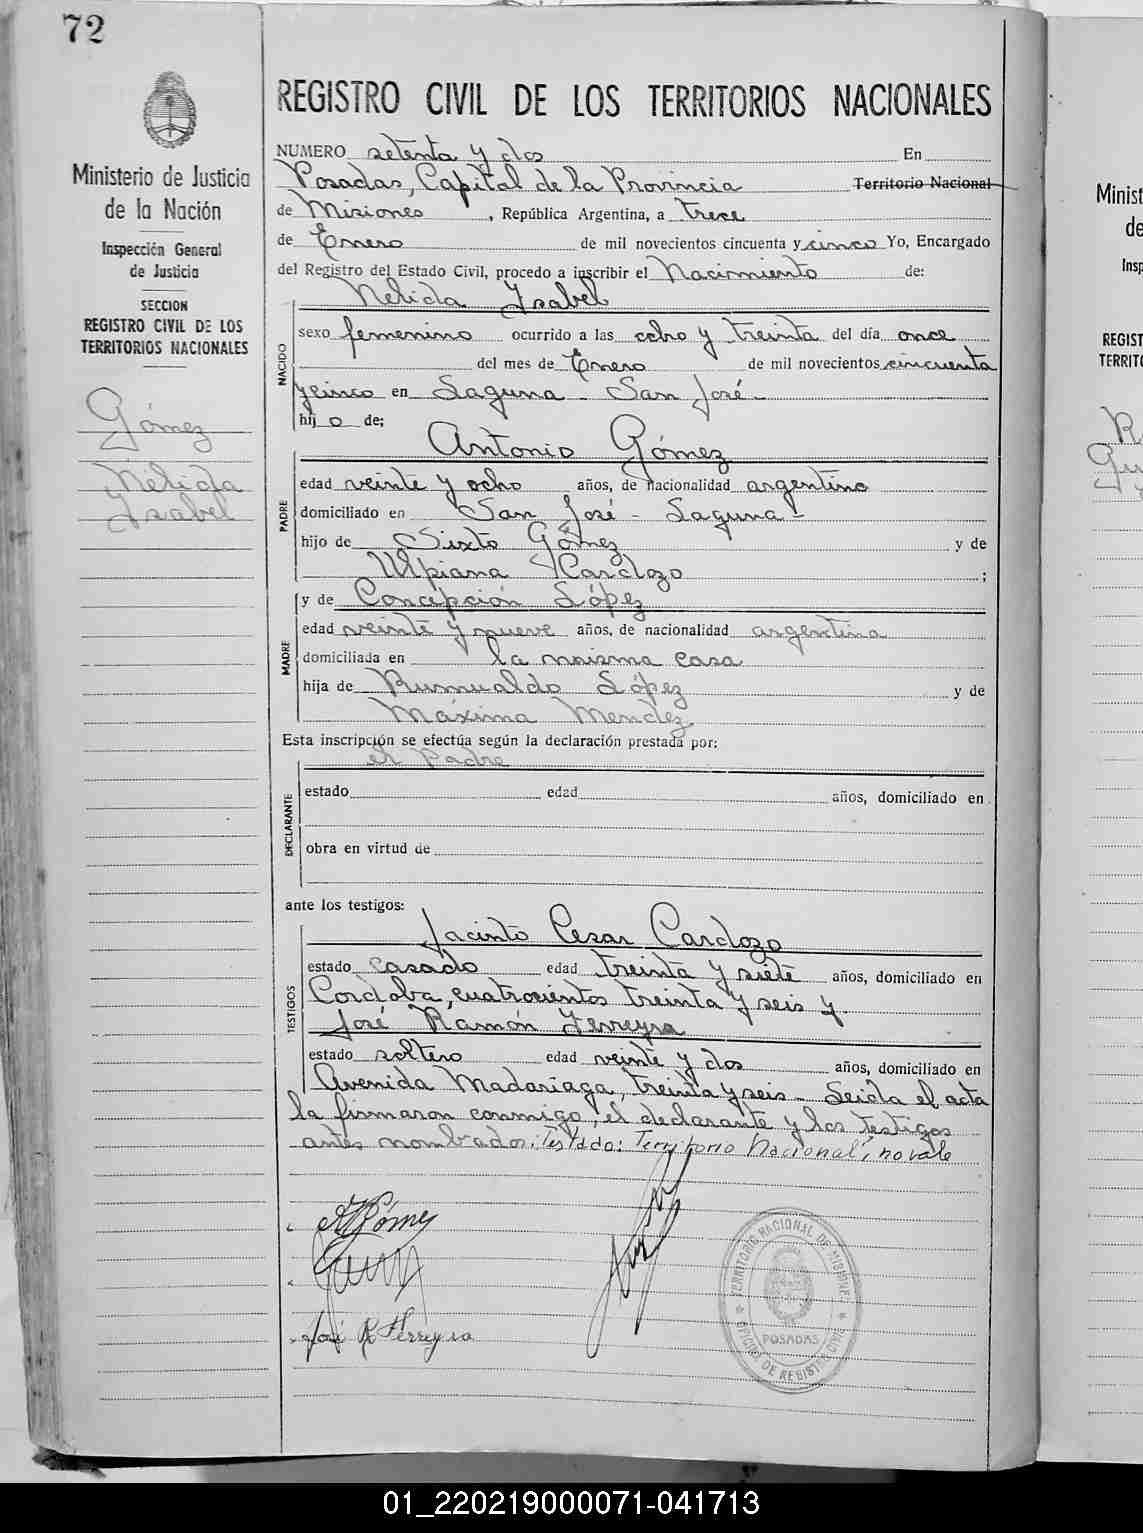 72
Ministerio de Justicia
de la Nación
Inspección General
de Justicia
SECCION
REGISTRO CIVIL DE LOS
TERRITORIOS NACIONALES
Gómez
Nélida
Ysabel
REGISTRO CIVIL DE LOS TERRITORIOS NACIONALES
NUMERO setenta y dos En
Posadas, Capital de la Provincia Territorio Nacional
de Misiones, República Argentina, a trece
de Enero de mil novecientos cincuenta y cinco Yo, Encargado
del Registro del Estado Civil, procedo a inscribir el Nacimiento de:
Nelida Ysabel
NACIDO
sexo femenino ocurrido a las ocho y treinta del día once
del mes de Enero de mil novecientos cincuenta
y cinco en Laguna - San José -
hij o de;
Antonio Gómez
PADRE
edad veinte y ocho años, de nacionalidad argentino
domiciliado en San José - Laguna -
hijo de Sixto Gómez y de
Ulpiana Cardozo ;
y de Concepción López
MADRE
edad veinte y nueve años, de nacionalidad argentina
domiciliada en la misma casa
hija de Rumualdo López y de
Máxima Mendez
Esta inscripción se efectúa según la declaración prestada por:
el Padre
DECLARANTE
estado edad años, domiciliado en
obra en virtud de
ante los testigos:
Jacinto Cesar Cardozo
TESTIGOS
estado casado edad treinta y siete años, domiciliado en
Cordoba, cuatrocientos treinta y seis y
José Ramón Ferreyra
estado soltero edad veinte y dos años, domiciliado en
Avenida Madariaga, treinta y seis - Leida el acta
la firmaron conmigo, el declarante y los testigos
antes nombrados: Testado: Territorio Nacional; no vale
A Gómez
José R Ferreyra
TERRITORIO NACIONAL DE MISIONES
POSADAS
OFICINA DE REGISTRO CIVIL
Minist
de
Insp
REGIST
TERRITO
01_220219000071-041713